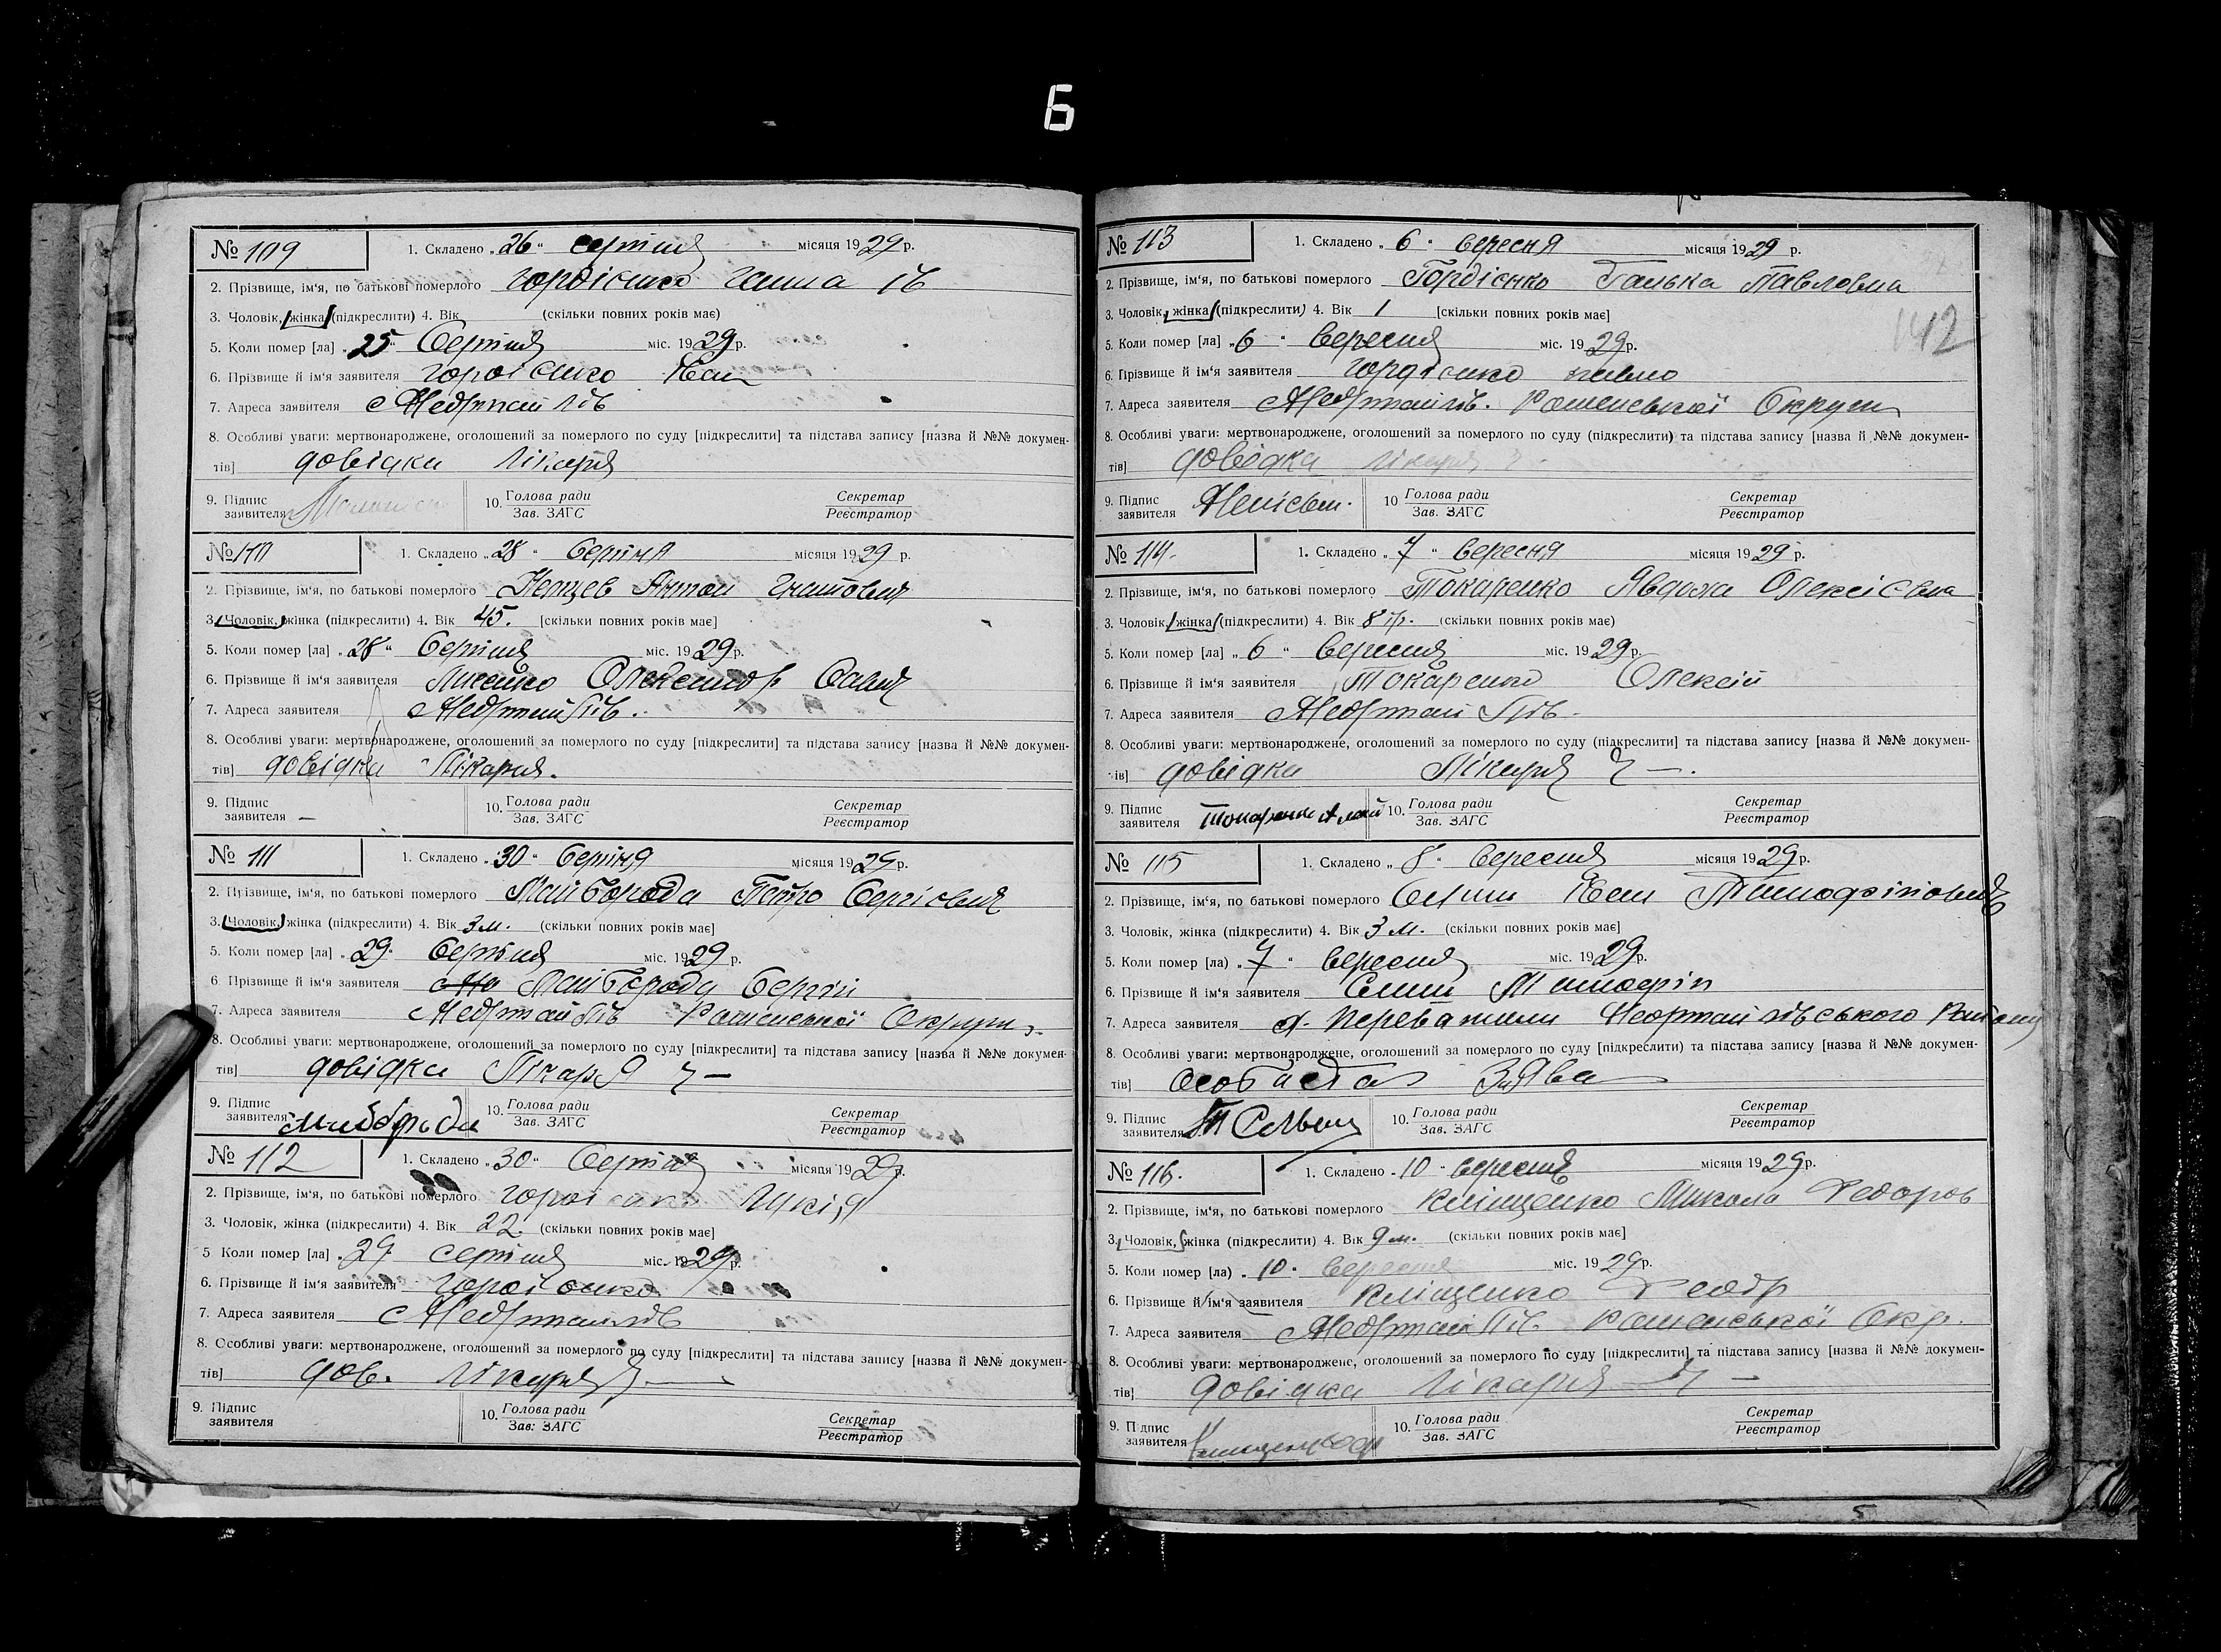 Б
№ 109 1. Складено „26“ серпня місяця 1929 р.
2. Прізвище, ім'я, по батькові померлого Гордієнко Ганна Ів
3. Чоловік, жінка (підкреслити) 4. Вік (скільки повних років має)
5. Коли помер [ла] „25“ Серпня міс. 1929 р.
6. Прізвище й ім'я заявителя Гордієнко Іван
7. Адреса заявителя с Недригайлів
8. Особливі уваги: мертвонароджене, оголошений за померлого по суду [підкреслити] та підстава запису [назва й №№ докумен-
тів] довідка лікаря
9. Підпис заявителя 10. Голова ради Зав. ЗАГС Секретар Реєстратор
№ 110 1. Складено „28“ Серпня місяця 1929 р.
2. Прізвище, ім'я, по батькові померлого Антон Гнатович
3. Чоловік, жінка (підкреслити) 4. Вік 45. [скільки повних років має]
5. Коли помер [ла] „28“ Серпня міс. 1929 р.
6. Прізвище й ім'я заявителя Олександр
7. Адреса заявителя с Недригайлів.
8. Особливі уваги: мертвонароджене, оголошений за померлого по суду [підкреслити] та підстава запису [назва й №№ докумен-
тів] довідка Лікаря.
9. Підпис заявителя — 10. Голова ради Зав. ЗАГС Секретар Реєстратор
№ 111 1. Складено „30“ Серпня місяця 1929 р.
2. Прізвище, ім'я, по батькові померлого Майборода Петро Сергієвич
3. Чоловік, жінка (підкреслити) 4. Вік 3 м. (скільки повних років має]
5. Коли помер [ла] „29. Серпня міс. 1929 р.
6. Прізвище й ім'я заявителя Майборода Сергій
7. Адреса заявителя с Недригайлів Роменської Округи
8. Особливі уваги: мертвонароджене, оголошений за померлого по суду [підкреслити] та підстава запису [назва й №№ докумен-
тів] довідка Лікаря —
9. Підпис заявителя Майборода 10. Голова ради Зав. ЗАГС Секретар Реєстратор
№ 112 1. Складено „30“ Серпня місяця 1929 р.
2. Прізвище, ім'я, по батькові померлого Гордієнко
3. Чоловік, жінка (підкреслити) 4. Вік 22 (скільки повних років має]
5 Коли помер [ла] „29 серпня міс. 1929 р.
6. Прізвище й ім'я заявителя Гордієнко
7. Адреса заявителя с Недригайлів
8. Особливі уваги: мертвонароджене, оголошений за померлого по суду [підкреслити] та підстава запису [назва й №№ докумен-
тів] дов. лікаря —
9. Підпис заявителя 10. Голова ради Зав. ЗАГС Секретар Реєстратор
№ 113 1. Складено „6“ Вересня місяця 1929 р.
2. Прізвище, ім'я, по батькові померлого Гордієнко Галька Павловна
142
3. Чоловік, жінка (підкреслити) 4. Вік 1 [скільки повних років має]
5. Коли помер [ла] „6“ Вересня міс. 1929 р.
6. Прізвище й ім'я заявителя Гордієнко Павло
7. Адреса заявителя с Недригайлів. Роменської Округи
8. Особливі уваги: мертвонароджене, оголошений за померлого по суду (підкреслити) та підстава запису [назва й №№ докумен-
тів] довідка лікаря
9. Підпис заявителя 10 Голова ради Зав. ЗАГС Секретар Реєстратор
№ 114. 1. Складено „7“ Вересня місяця 1929 р.
2. Прізвище, ім'я, по батькові померлого Токаренко Явдоха Олексієвна
3. Чоловік, жінка (підкреслити) 4. Вік 8 (скільки повних років має)
5. Коли помер [ла] „6“ Вересня міс. 1929 р.
6. Прізвище й ім'я заявителя Токаренко Олексій
7. Адреса заявителя с Недригайлів.
8. Особливі уваги: мертвонароджене, оголошений за померлого по суду (підкреслити] та підстава запису [назва й №№ докумен-
тів] довідка Лікаря —.
9. Підпис заявителя Токаренко 10. Голова ради Зав. ЗАГС Секретар Реєстратор
№ 115 1. Складено „8“ Вересня місяця 1929 р.
2. Прізвище, ім'я, по батькові померлого Іван Тимофійович
3. Чоловік, жінка (підкреслити) 4. Вік 3 м. (скільки повних років має]
5. Коли помер [ла) „7“ Вересня міс. 1929 р.
6. Прізвище й ім'я заявителя Тимофій
7. Адреса заявителя Недригайлівського Району
8. Особливі уваги: мертвонароджене, оголошений за померлого по суду [підкреслити) та підстава запису [назва й №№ докумен-
тів] Особиста Заява
9. Підпис заявителя 10. Голова ради Зав. ЗАГС Секретар Реєстратор
№ 116. 1. Складено „10“ Вересня місяця 1929 р.
2. Прізвище, ім'я, по батькові померлого Кліщенко Микола Федоров
3. Чоловік, жінка (підкреслити) 4. Вік 9 м. (скільки повних років має]
5. Коли помер [ла) „10. Вересня міс. 1929 р.
6. Прізвище й ім'я заявителя Кліщенко Федір
7. Адреса заявителя с Недригайлів Роменської Окр.
8. Особливі уваги: мертвонароджене, оголошений за померлого по суду [підкреслити] та підстава запису [назва й №№ докумен-
тів] довідка лікаря —
9. Підпис заявителя 10. Голова ради Зав. ЗАГС Секретар Реєстратор
5